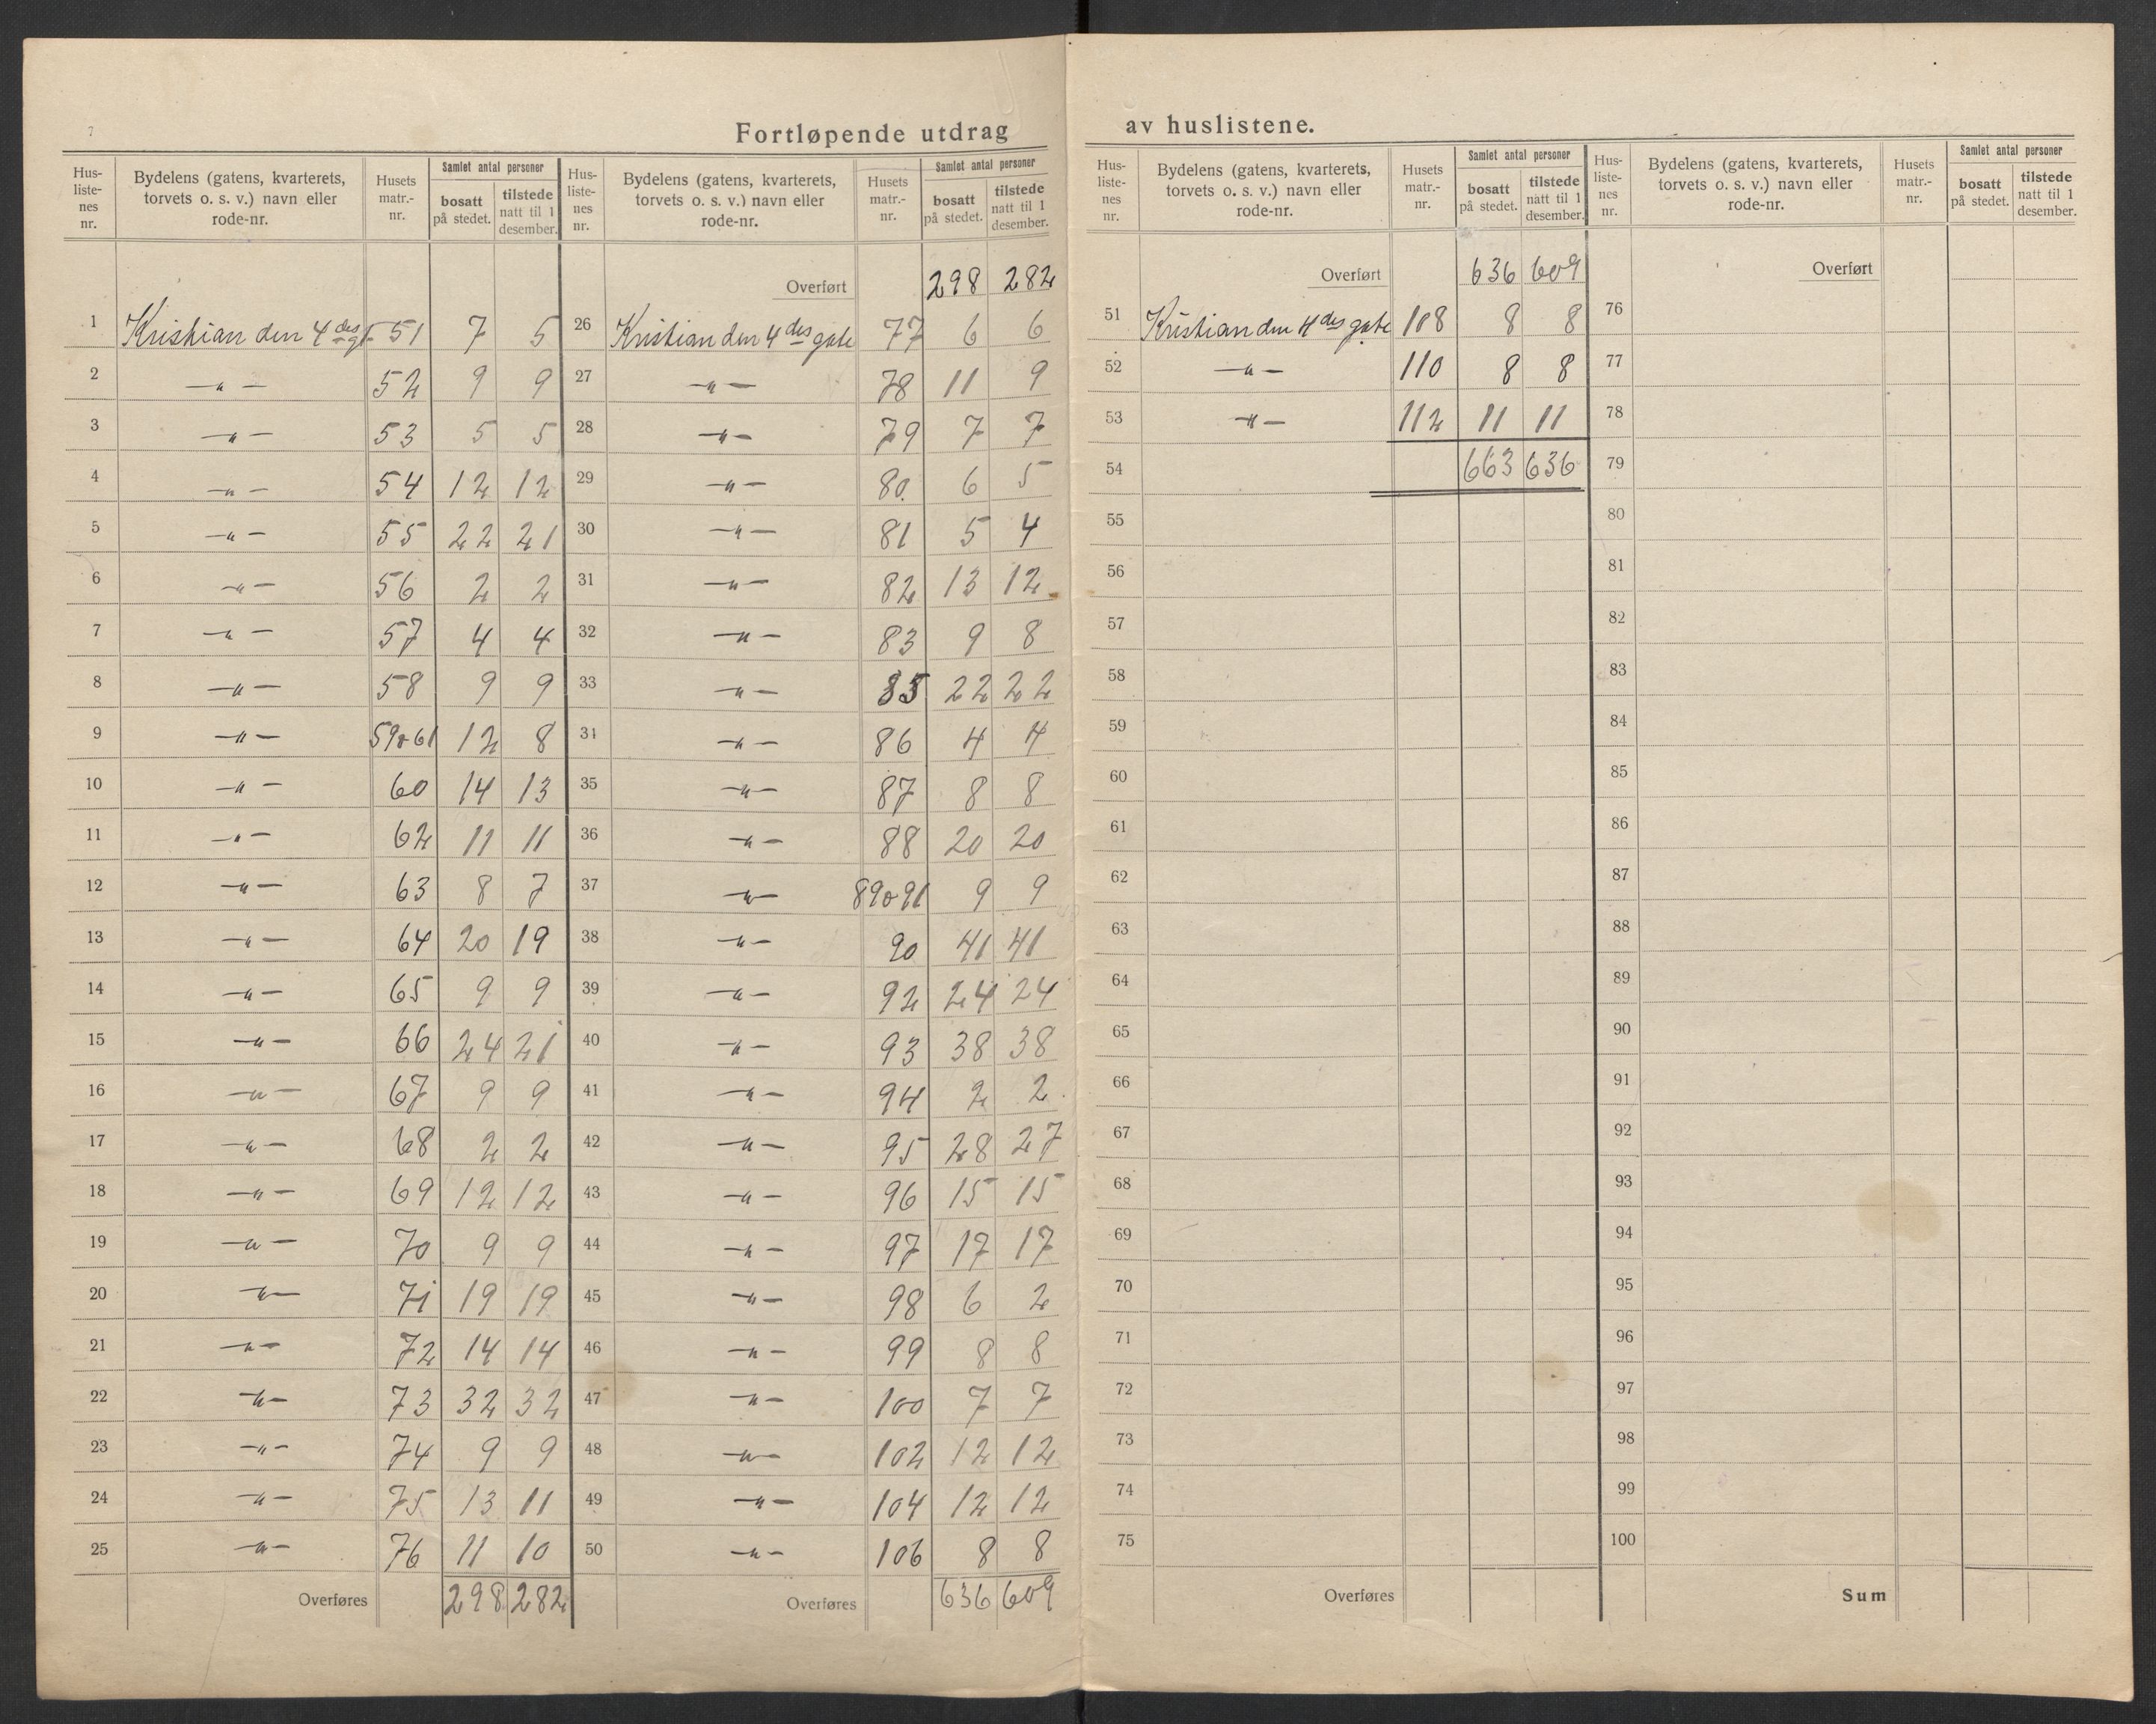 7
Fortløpende utdrag av huslistene.
Hus-liste-nes nr. | Bydelens (gatens, kvarterets, torvets o. s. v.) navn eller rode-nr. | Husets matr.-nr. | Samlet antal personer | bosatt på stedet. | tilstede natt til 1 desember.
1 Kristian den 4des gt. 51 7 5
2 —„— 52 9 9
3 —„— 53 5 5
4 —„— 54 12 12
5 —„— 55 22 21
6 —„— 56 2 2
7 —„— 57 4 4
8 —„— 58 9 9
9 —„— 59 o 61 12 8
10 —„— 60 14 13
11 —„— 62 11 11
12 —„— 63 8 7
13 —„— 64 20 19
14 —„— 65 9 9
15 —„— 66 24 21
16 —„— 67 9 9
17 —„— 68 2 2
18 —„— 69 12 12
19 —„— 70 9 9
20 —„— 71 19 19
21 —„— 72 14 14
22 —„— 73 32 32
23 —„— 74 9 9
24 —„— 75 13 11
25 —„— 76 11 10
Overføres 298 282
Hus-liste-nes nr. | Bydelens (gatens, kvarterets, torvets o. s. v.) navn eller rode-nr. | Husets matr.-nr. | Samlet antal personer | bosatt på stedet. | tilstede natt til 1 desember.
Overført 298 282
26 Kristian den 4des gate 77 6 6
27 —„— 78 11 9
28 —„— 79 7 7
29 —„— 80. 6 5
30 —„— 81 5 4
31 —„— 82 13 12
32 —„— 83 9 8
33 —„— 85 22 22
34 —„— 86 4 4
35 —„— 87 8 8
36 —„— 88 20 20
37 —„— 89 o 91 9 9
38 —„— 90 41 41
39 —„— 92 24 24
40 —„— 93 38 38
41 —„— 94 2 2
42 —„— 95 28 27
43 —„— 96 15 15
44 —„— 97 17 17
45 —„— 98 6 2
46 —„— 99 8 8
47 —„— 100 7 7
48 —„— 102 12 12
49 —„— 104 12 12
50 —„— 106 8 8
Overføres 636 609
Hus-liste-nes nr. | Bydelens (gatens, kvarterets, torvets o. s. v.) navn eller rode-nr. | Husets matr.-nr. | Samlet antal personer | bosatt på stedet. | tilstede natt til 1 desember.
Overført 636 609
51 Kristian den 4des gate 108 8 8
52 —„— 110 8 8
53 —„— 112 11 11
54 663 636
55
56
57
58
59
60
61
62
63
64
65
66
67
68
69
70
71
72
73
74
75
Overføres
Hus-liste-nes nr. | Bydelens (gatens, kvarterets, torvets o. s. v.) navn eller rode-nr. | Husets matr.-nr. | Samlet antal personer | bosatt på stedet. | tilstede natt til 1 desember.
Overført
76
77
78
79
80
81
82
83
84
85
86
87
88
89
90
91
92
93
94
95
96
97
98
99
100
Sum